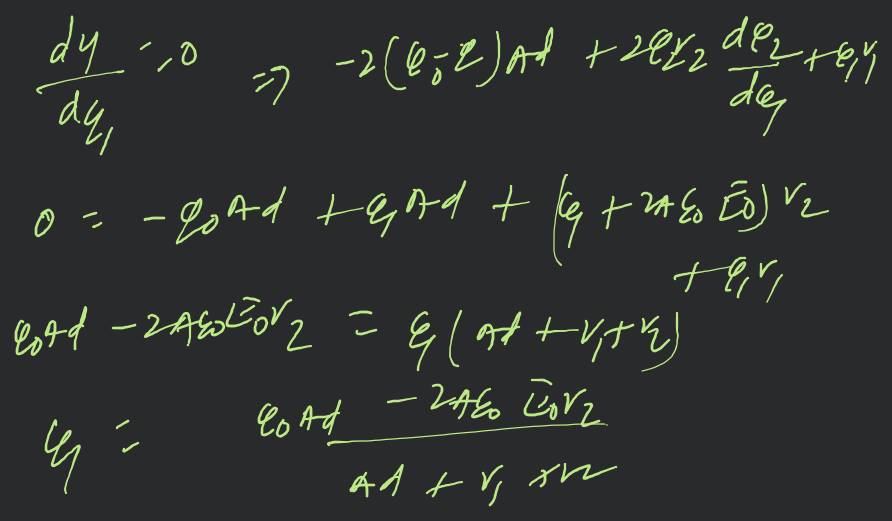 dy/dq₁ = 0 ⇒ -2(q₀-q)Ad + 2q₂r₂ dq₂/dq₁ + q₁r₁
0 = -q₀Ad + q₁Ad + (q₁ + 2Aε₀E₀)r₂
+ q₁r₁
q₀Ad - 2Aε₀E₀r₂ = q₁(Ad + r₁ + r₂)
q₁ = (q₀Ad - 2Aε₀E₀r₂)/(Ad + r₁ + r₂)